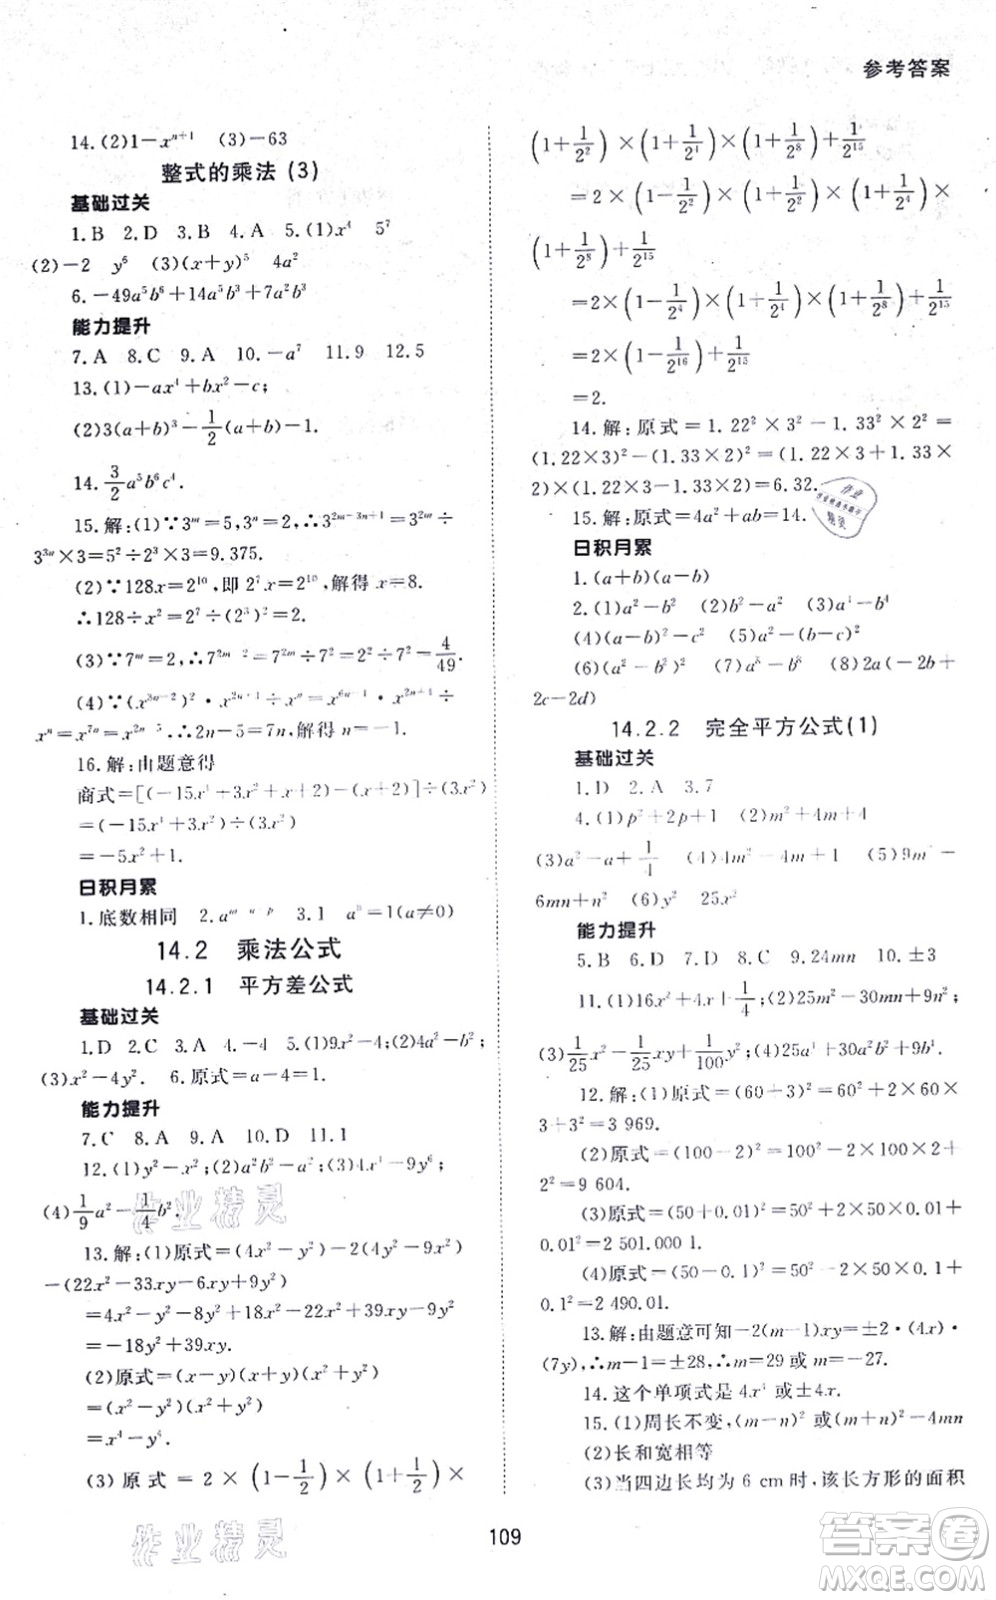 参考答案
14.(2)1－xⁿ⁺¹　(3)－63
整式的乘法(3)
基础过关
1.B　2.D　3.B　4.A　5.(1)x⁴　5⁷
(2)－2　y⁶　(3)(x＋y)⁵　4a²
6.－49a⁵b⁶＋14a⁵b³＋7a²b²
能力提升
7.A　8.C　9.A　10.－a⁷　11.9　12.5
13.(1)－ax⁴＋bx²－c；
(2)3(a＋b)³－1/2(a＋b)－1.
14.3/2a⁵b⁶c⁴.
15.解：(1)∵3ᵐ＝5,3ⁿ＝2,∴3²ᵐ⁻³ⁿ⁺¹＝3²ᵐ÷
3³ⁿ×3＝5²÷2³×3＝9.375.
(2)∵128x＝2¹⁰,即 2⁷x＝2¹⁰,解得 x＝8.
∴128÷x²＝2⁷÷(2³)²＝2.
(3)∵7ᵐ＝2,∴7²ᵐ⁻²＝7²ᵐ÷7²＝2²÷7²＝4/49.
(4)∵(x³ⁿ⁻²)²·x²ⁿ⁺¹÷xⁿ＝x⁶ⁿ⁻⁴·x²ⁿ⁺¹÷
xⁿ＝x⁷ⁿ⁻³＝x²ⁿ⁻⁵.∴7n－3＝2n－5,解得 n＝
16.解：由题意得
商式＝[(－15x⁴＋3x²＋x＋2)－(x＋2)]÷(3x²)
＝(－15x⁴＋3x²)÷(3x²)
＝－5x²＋1.
日积月累
1.底数相同　2.aᵐ⁻ⁿ　3.1　a⁰＝1(a≠0)
14.2　乘法公式
14.2.1　平方差公式
基础过关
1.D　2.C　3.A　4.－4　5.(1)9x²－4；(2)4a²－b²；
(3)x²－4y².　6.原式＝a－4＝1.
能力提升
7.C　8.A　9.A　10.D　11.1
12.(1)y²－x²；(2)a²b²－a²；(3)4x⁴－9y⁶；
(4)1/9a²－1/4b².
13.解：(1)原式＝(4x²－y²)－2(4x²－y²)
－(22x²－33xy－6xy＋9y²)
＝4x²－y²－8y²＋2y²＋18x²－22x²＋39xy－9y²
＝－18y²＋39xy.
(2)原式＝(x－y)(x＋y)(x²＋y²)
＝(x²－y²)(x²＋y²)
＝x⁴－y⁴.
(3)原式＝2×(1－1/2)×(1＋1/2)×
(1＋1/2²)×(1＋1/2⁴)×(1＋1/2⁸)＋1/2¹⁵
＝2×(1－1/2²)×(1＋1/2²)×(1＋1/2⁴)×
(1＋1/2⁸)＋1/2¹⁵
＝2×(1－1/2⁴)×(1＋1/2⁴)×(1＋1/2⁸)＋1/2¹⁵
＝2×(1－1/2¹⁶)＋1/2¹⁵
＝2.
14.解：原式＝1.22²×3²－1.33²×2²＝
(1.22×3)²－(1.33×2)²＝(1.22×3＋1.33×
2)×(1.22×3－1.33×2)＝6.32.
15.解：原式＝4a²＋ab＝14.
日积月累
1.(a＋b)(a－b)
2.(1)a²－b²　(2)b²－a²　(3)a⁴－b⁴
(4)(a－b)²－c²　(5)a²－(b－c)²
(6)(a²－b²)²　(7)a⁸－b⁸　(8)2a(－2b＋
2c－2d)
14.2.2　完全平方公式(1)
基础过关
1.D　2.A　3.7
4.(1)p²＋2p＋1　(2)m²＋4m＋4
(3)a²－a＋1/4　(4)4m²－4m＋1　(5)9m²－
6mn＋n²　(6)4x²　y²　25x²
能力提升
5.B　6.D　7.D　8.C　9.24mn　10.±3
11.(1)16x²＋4x＋1/4；(2)25m²－30mn＋9n²；
(3)1/25x²－1/25xy＋1/100y²；(4)25a⁴＋30a²b²＋9b⁴.
12.解：(1)原式＝(60＋3)²＝60²＋2×60×
3＋3²＝3 969.
(2)原式＝(100－2)²＝100²－2×100×2＋
2²＝9 604.
(3)原式＝(50＋0.01)²＝50²＋2×50×0.01＋
0.01²＝2 501.000 1.
(4)原式＝(50－0.1)²＝50²－2×50×0.1＋
0.1²＝2 490.01.
13.解：由题意可知－2(m－1)xy＝±2·(4x)·
(7y),∴m－1＝±28,∴m＝29 或 m＝－27.
14.这个单项式是 4x⁴ 或±4x.
15.(1)周长不变,(m－n)² 或(m＋n)²－4mn
(2)长和宽相等
(3)当四边长均为 6 cm时,该长方形的面积
109
作业精灵
作业精灵
作业
精灵
答案圈
MXQE.COM